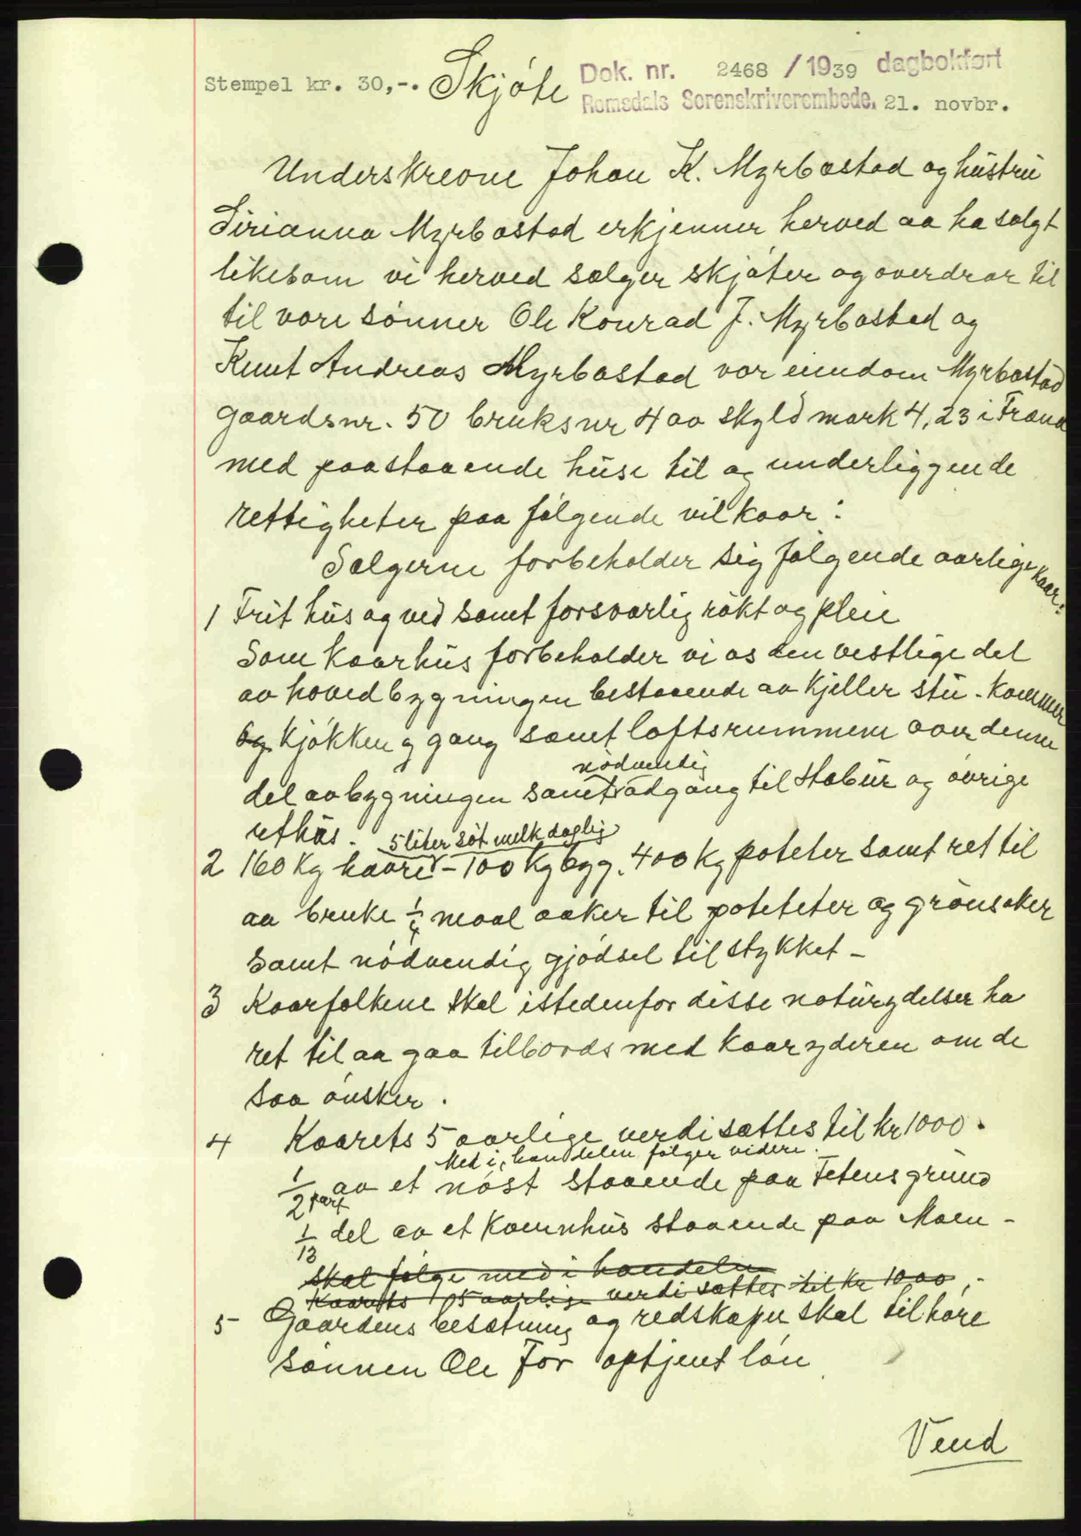 Stempel kr. 30,-. Skjóte Dok. nr. 2468 / 1939 dagbokført
Romsdals Sorenskriverembede. 21. novbr.
Underskrevne Johan K. Myrbostad og hustru
Sirianna Myrbostad erkjenner herved aa ha solgt
likesom vi herved sælger skjóter og overdrar til
til vore sónner Ole Konrad J. Myrbostad og
Knut Andreas Myrbostad vor eiendom Myrbostad
gaardsnr. 50 bruksnr 4 av skyld mark 4,23 i Fræna
med paastaaende huse til og underliggende
rettigheter paa fólgende vilkaar:
Sælgerne forbeholder sig fólgende aarlige kaar:
1 Frit hus og ved samt forsvarlig rókt og pleie
Som kaarhus forbeholder vi os den vestlige del
av hovedbygningen bestaaende av kjeller stu - kammer
og kjókken g gang samt loftsrummene over denne
nódvendig
del av bygningen samt adgang til Stabur og óvrige
uthus. 5 liter sót melk daglig
2 160 kg havre - 100 kg bygg. 400 kg poteter samt ret til
aa bruke 1/4 maal aaker til poteteter og grónsaker
samt nódvendig gjódsel til stykket -
3 Kaarfolkene skal istedenfor disse naturydelser ha
ret til aa gaa tilbords med kaaryderen om de
saa ónsker.
4 Kaarets 5 aarlige verdi sættes til kr 1000.
Med i handelen fólger videre.
1/2 part av et nóst staaende paa Tetens grund
1/13 del av et Kvernhus staaende paa Moen -
skal fólge med i handelen
Kaarets 5 aarlige verdi sættes til kr 1000,-
5 Gaardens besætning og redskaper skal tilhóre
sónnen Ole for optjent lón
Vend